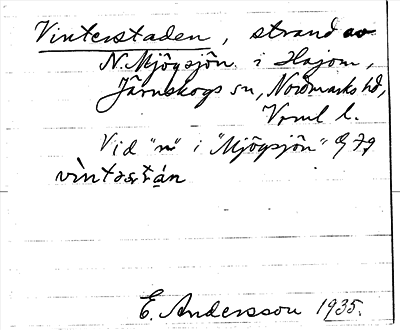 Vinterstaden, strand av
N. Mjögsjön i Hajom,
Järnskogs sn, Nordmarks hd,
Verml l.
Vid "n" i "Mjögsjön" G 79
vìntəstán
E. Andersson 1935.